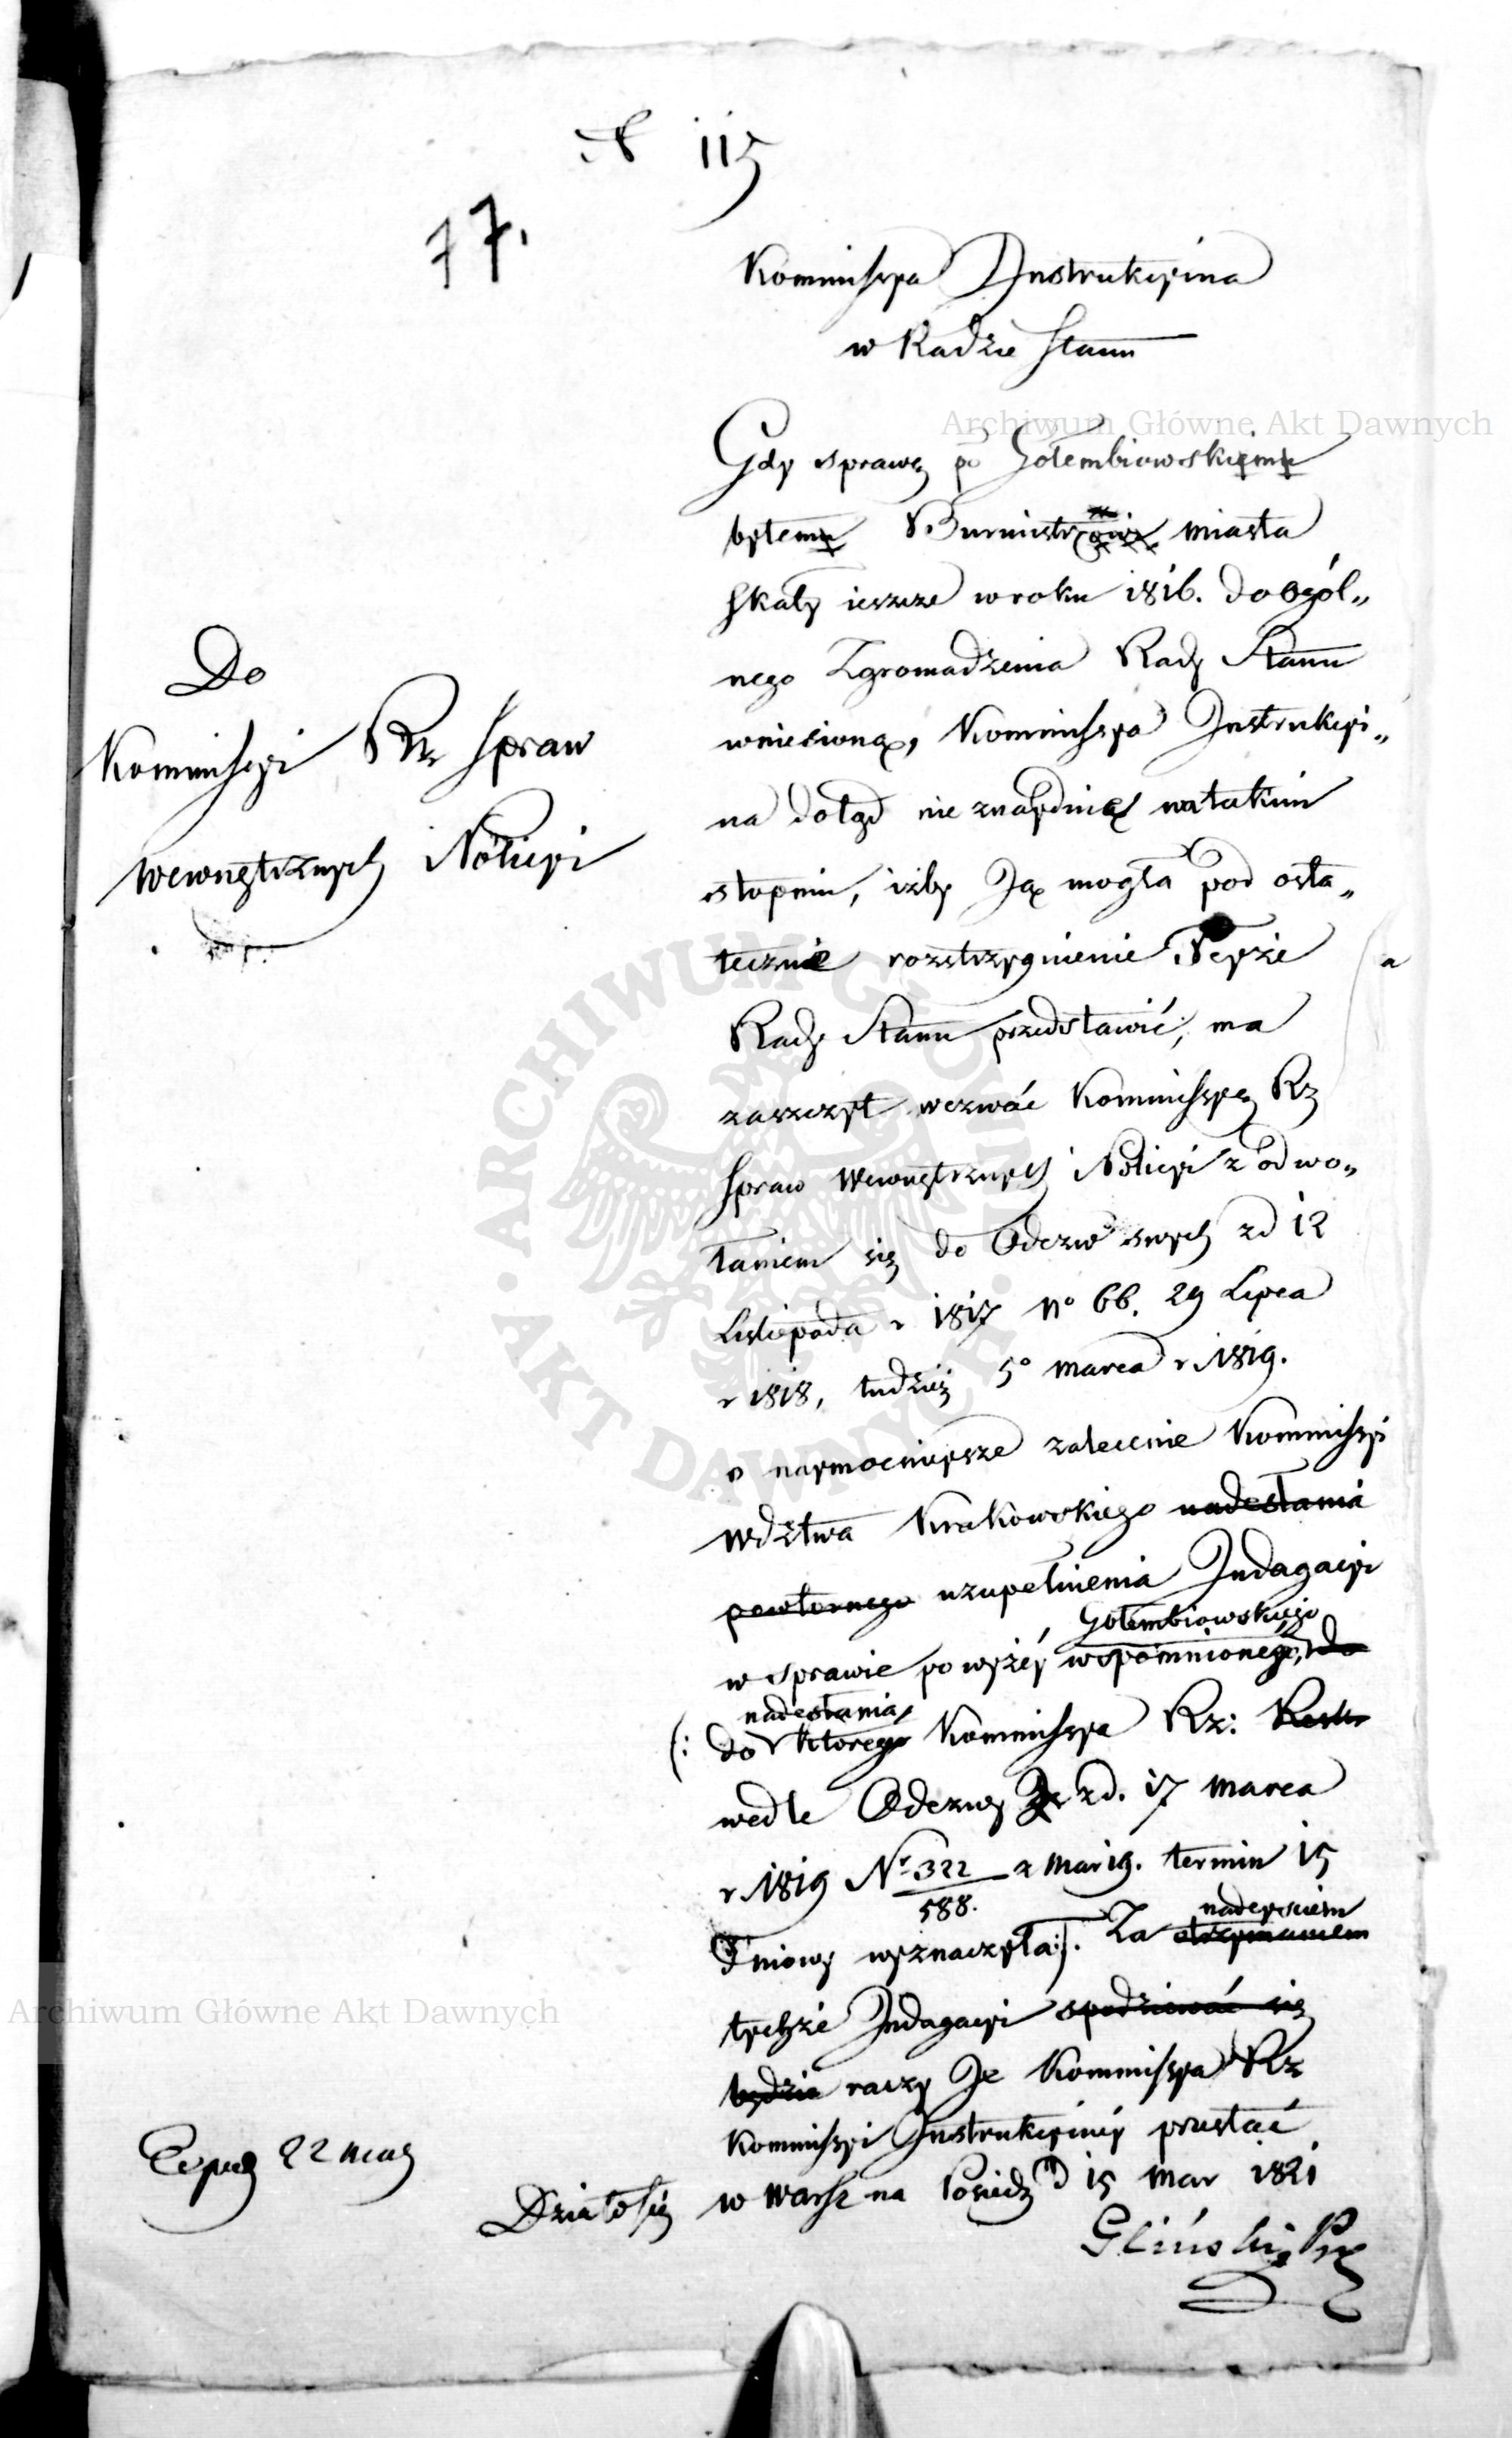 N 115
77.
Kommissya Instrukcyina
w Radzie Stanu
Archiwum Główne Akt Dawnych
Gdy sprawę po Gołembiowskiemu
byłemu Burmistrzowi miasta
Skały ieszcze w roku 1816. do ogól„
nego Zgromadzenia Rady Stanu
wniesioną, Kommissya Instrukcyi„
na dotąd nie znayduie na takim
stopniu, iżby Ją mogła pod osta„
teczne rozstrzygnienie Teyże
a
Rady Stanu przedstawić, ma
zaszczyt wezwać Kommissyę Rz
Spraw Wewnętrznych i Policyi z odwo„
łaniem się do Odezw swych z d 12
Listopada r 1817 No 66. 29 Lipca
r 1818, tudzież 5o marca r. 1819.
o naymocnieysze zalecenie Kommissyi
Wdztwa Krakowskiego nadesłania
powtornego uzupełnienia Indagacyi
Gołembiowskiego
w sprawie powyżéy wspomnionego, do
nadesłania
(: do którego Kommissya Rz:
wedle Odezwy Je z d. 17 marca
r. 1819 Nr 322/588. z Mar 19. termin 15
dniowy wyznaczyła :). Za
nadeysciem
otrzymaniem
tychże Indagacyi spodziewać się
będzie raczy Je Kommissya Rz
Kommissyi Instrukcyinéy przesłać
Działo się w Warsz na Posiedz d 15 Mar 1821
Gliński Pr
Do
Kommissyi Rz Spraw
Wewnętrznych i Policyi
Exped 22 mag
ARCHIWUM GŁÓWNE · AKT DAWNYCH ·
Archiwum Główne Akt Dawnych